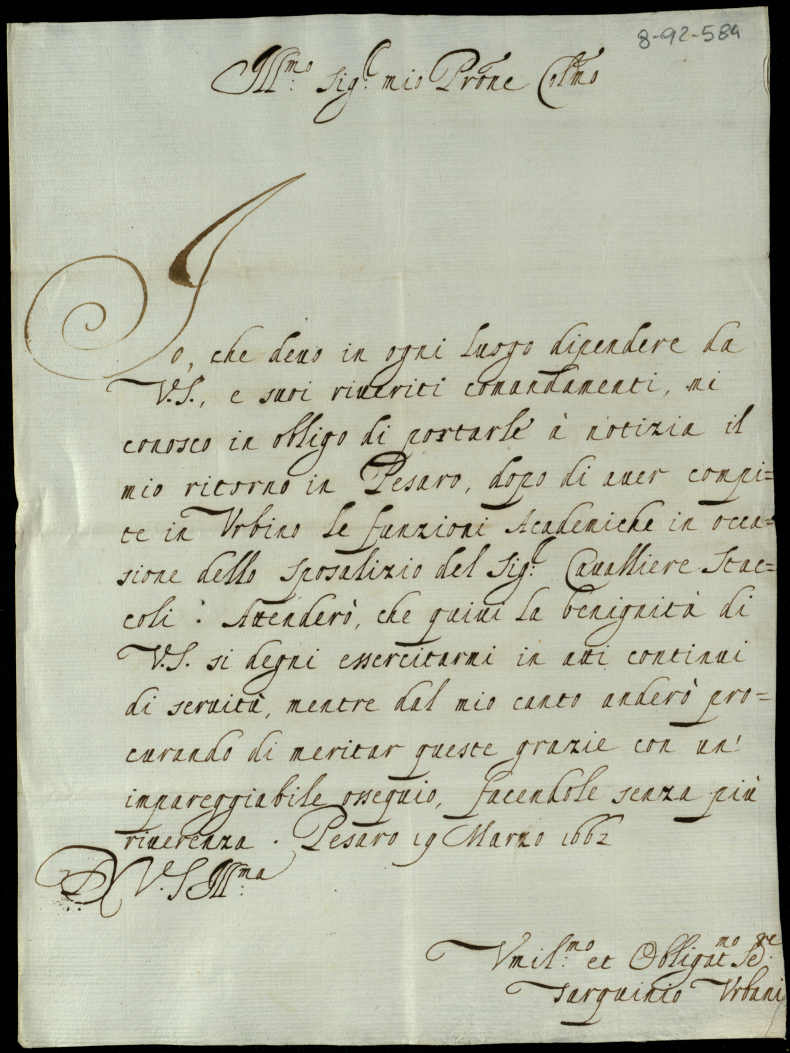 8-92-589
Ill:mo Sig:r mio Prone Col:mo
Io, che deuo in ogni luogo dipendere da
V.S., e suoi riueriti comandamenti, mi
conosco in obligo di portarle à notizia il
mio ritorno in Pesaro, dopo di auer compi=
te in Vrbino le funzioni Academiche in occa=
sione dello sposalizio del Sig:r Caualliere Stac=
coli. Attenderò, che quiui la benignità di
V.S. si degni essercitarmi in atti continui
di seruitù, mentre dal mio canto anderò pro=
curando di meritar queste grazie con un'
impareggiabile ossequio, facendole senza più
riuerenza. Pesaro 19 Marzo 1662
D V.S Ill:ma
Vmil:mo et Obligat:mo Se:re
Tarquinio Vrbani